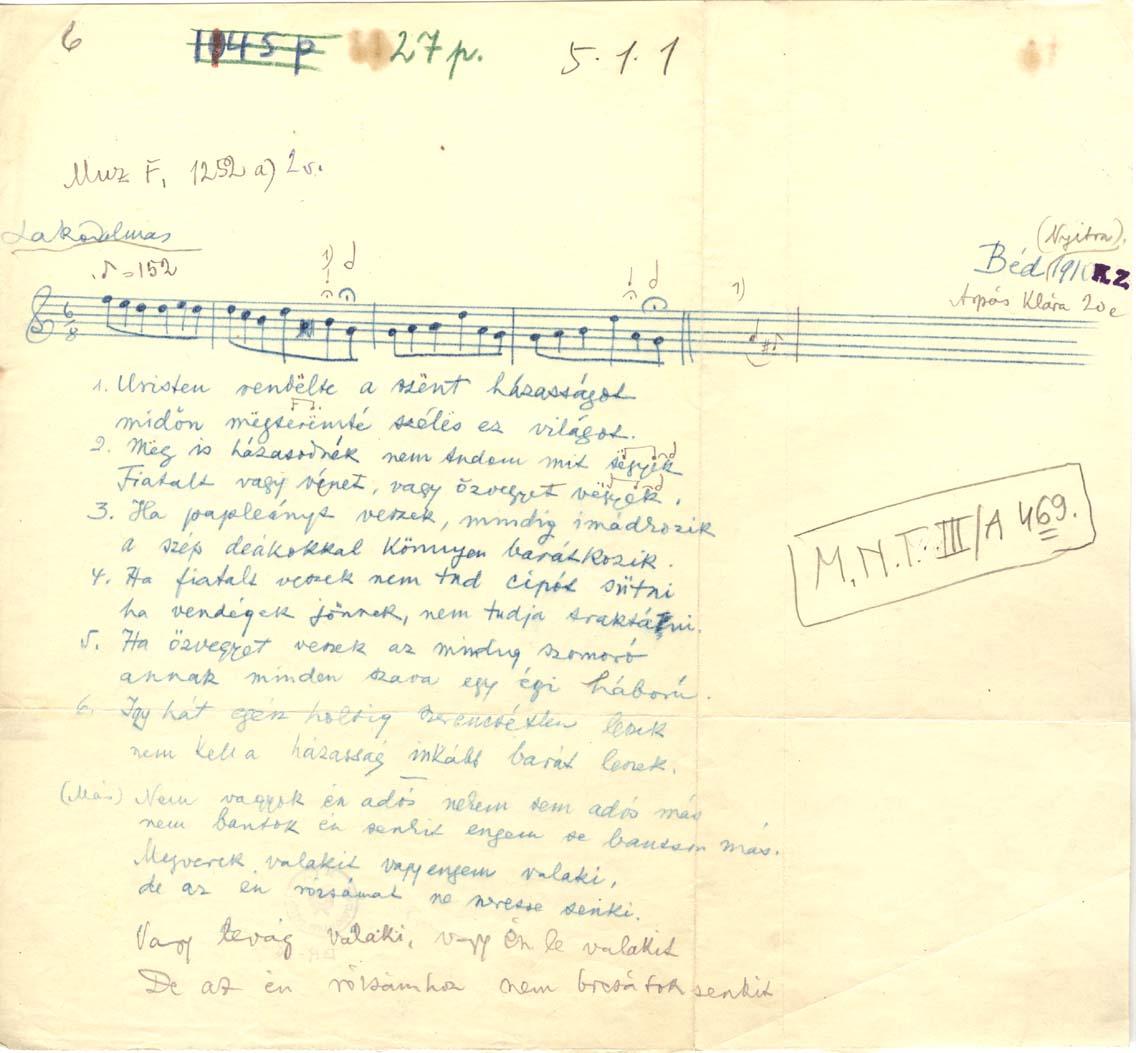 6 1045 p 27 p. 5.1.1
Muz F. 1252 a) 2v.
Lakodalmas
(Nyitra).
♪ = 152
1)
Béd 1910 KZ
Árpás Klára 20 e
6/8
1)
1. Uristen rendėlte a szënt házasságot
midőn mëgterëmté szélës ez világot.
2. Mëg is házasodnék nem tudom mit tëgyëk
Fiatalt vagy vénet, vagy özvegyet vëgyëk.
3. Ha papleányt veszek, mindig imádkozik
a szép deákokkal könnyen barátkozik.
4. Ha fiatalt veszek nem tud cipót sütni
ha vendégek jönnek, nem tudja traktálni.
5. Ha özvegyet veszek az mindig szomoró
annak minden szava egy égi háború.
6. Igy hát egész holtig szerencsétlen leszek
nem kell a házasság inkább barát leszek.
(Más) Nem vagyok én adós nekem sem adós más
nem bántok én senkit engem se bántson más.
Megverek valakit vagy engem valaki,
de az én rózsámat ne neresse senki.
Vagy levág valaki, vagy én le valakit
De az én rózsámhoz nem bocsátok senkit
M.N.T. III/A 469.